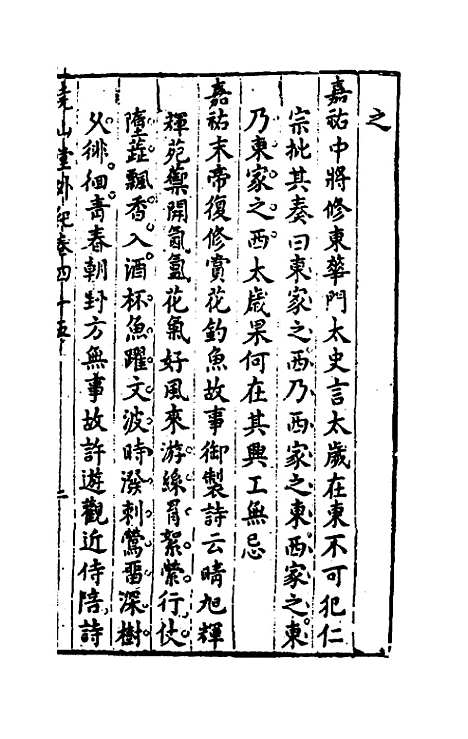 之
嘉祐中將修東華門太史言太歲在東不可犯仁
宗批其奏曰東家之西乃西家之東西家之東
乃東家之西太歲果何在其興工無忌
嘉祐末帝復修賞花釣魚故事御製詩云晴旭輝
輝苑籞開氤氳花氣好風來游絲罥絮縈行仗
墮蕋飄香入酒杯魚躍文波時潑剌鶯畱深樹
久徘徊青春朝野方無事故許遊觀近侍陪詩
堯山堂外紀卷四十五
二